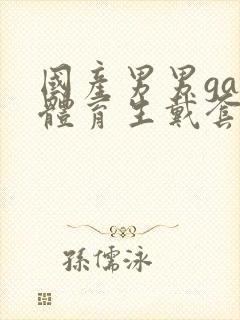 國產男男ga
體育生戴套
孫儒泳